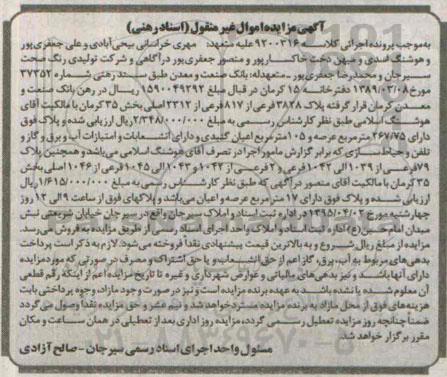 آگهی مزایده اموال غیر منقول (اسناد رهنی)
به موجب پرونده اجرائی کلاسه ۹۲۰۰۳۱۶ علیه متعهد: مهری خراسانی بیحی آبادی و علی جعفری پور
و هوشنگ اسدی و میهن دخت خاکسار پور و منصور جعفری پور درآگاهی و شرکت تولیدی رنگ صحت
سیرجان و محمدرضا جعفری پور - متعهدله: بانک صنعت و معدن طبق سند رهنی شماره ۳۷۳۵۲
مورخ ۱۳۸۹/۰۳/۰۸ دفترخانه ۱۵ کرمان در قبال مبلغ ۱۵۹۰۰۴۹۲۹۲ ریال در رهن بانک صنعت و
معدن کرمان قرار گرفته پلاک ۳۸۲۸ فرعی از ۸۱۷ فرعی از ۲۳۱۲ اصلی بخش ۳۵ کرمان با مالکیت آقای
هوشنگ اسلامی طبق نظر کارشناس رسمی به مبلغ ۲/۳۴۸/۰۰۰/۰۰۰ ریال ارزیابی شده و پلاک فوق
دارای ۲۶۷/۷۵ مترمربع عرصه و ۱۰۵ مترمربع اعیان کلیدی و دارای انشعابات و امتیازات آب و برق و گاز و
تلفن و حیاط سازی که برابر گزارش مامور اجرا در تصرف آقای هوشنگ اسلامی می باشد و همچنین پلاک
۷۹ فرعی از ۱۰۳۹ الی ۱۰۴۲ فرعی و ۲ فرعی از ۱۰۴۲ و ۱۰۴۳ الی ۱۰۴۵ فرعی از ۱۰۴۶ اصلی بخش
۳۵ کرمان با مالکیت آقای منصور درآگهی که طبق نظر کارشناس رسمی به مبلغ ۱/۶۱۵/۰۰۰/۰۰۰ ریال
ارزیابی شده و پلاک فوق دارای ۱۷ مترمربع عرصه و اعیان می باشد و پلاکهای فوق از ساعت ۹ الی ۱۲ روز
چهارشنبه مورخ ۱۳۹۵/۰۴/۰۲ در اداره ثبت اسناد و املاک سیرجان واقع در سیرجان خیابان شریعتی نبش
میدان امام حسین (ع) اداره ثبت اسناد و املاک واحد اجرای اسناد رسمی از طریق مزایده به فروش می رسد.
مزایده از مبلغ ریال شروع و به بالاترین قیمت پیشنهادی نقداً فروخته می شود. لازم به ذکر است پرداخت
بدهی های مربوط به آب، برق، گاز اعم از حق انشعاب و یا حق اشتراک و مصرف در صورتی که مورد مزایده
دارای آنها باشد و نیز بدهی های مالیاتی و عوارض شهرداری و غیره تا تاریخ مزایده اعم از اینکه رقم قطعی
آن معلوم شده یا نشده باشد به عهده برنده مزایده است و نیز در صورت وجود مازاد، وجوه پرداختی بابت
هزینه های فوق از محل مازاد به برنده مزایده مسترد خواهد شد و نیم عشر و حق مزایده نقداً وصول می گردد
ضمناً چنانچه روز مزایده تعطیل رسمی گردد، مزایده روز اداری بعد از تعطیلی در همان ساعت و مکان
مقرر برگزار خواهد شد.
مسئول واحد اجرای اسناد رسمی سیرجان - صالح آزادی